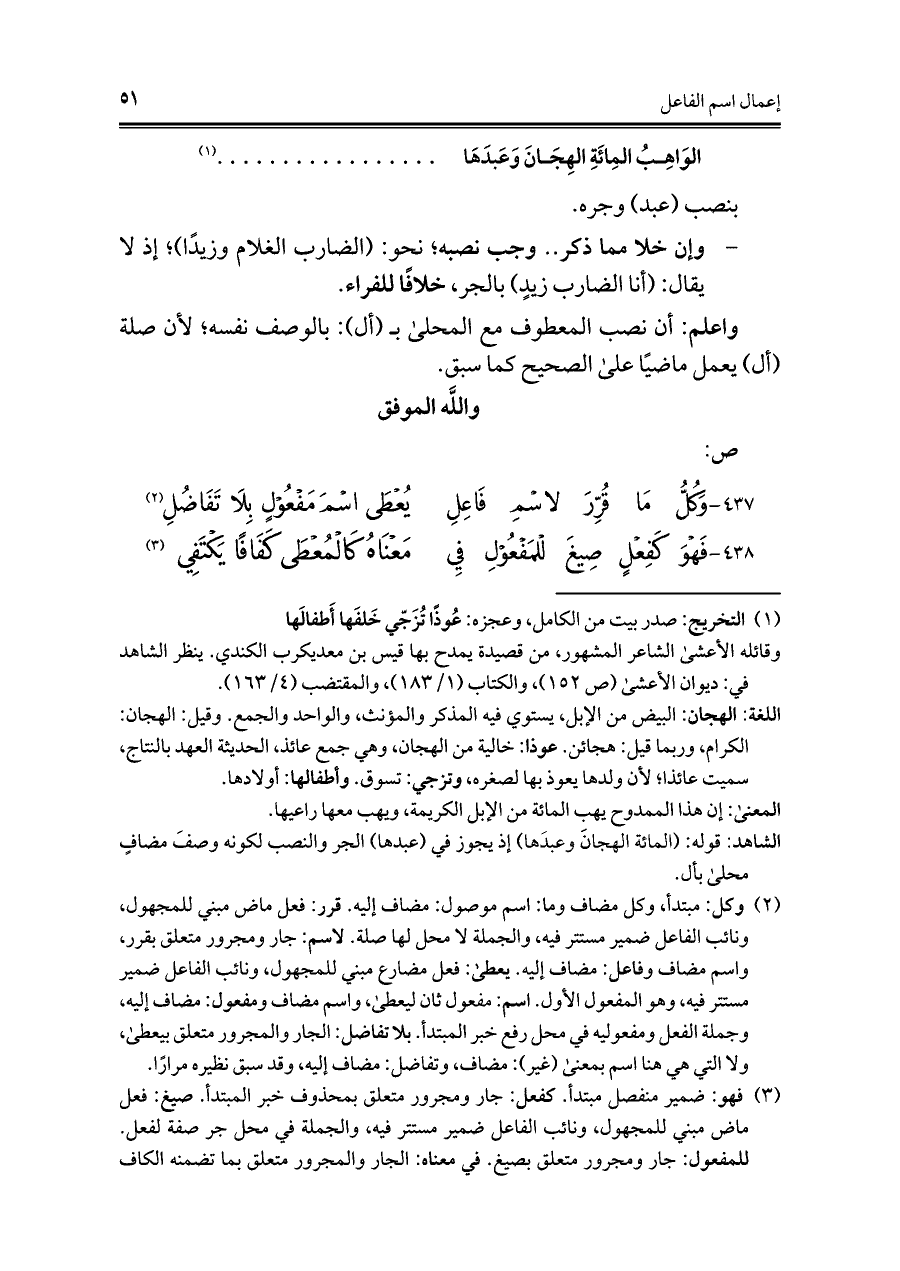 إعمال اسم الفاعل ٥١
الوَاهِـبُ المِائَةِ الهِجَـانَ وَعَبدَهَا . . . . . . . . . . . . . . . . .(١)
بنصب (عبد) وجره.
- وإن خلا مما ذكر.. وجب نصبه؛ نحو: (الضارب الغلام وزيدًا)؛ إذ لا
يقال: (أنا الضارب زيدٍ) بالجر، خلافًا للفراء.
واعلم: أن نصب المعطوف مع المحلىٰ بـ (أل): بالوصف نفسه؛ لأن صلة
(أل) يعمل ماضيًا علىٰ الصحيح كما سبق.
واللَّه الموفق
ص:
٤٣٧-وَكُلُّ مَا قُرِّرَ لاسْمِ فَاعِلِ يُعْطَى اسْمَ مَفْعُوْلٍ بِلَا تَفَاضُلِ(٢)
٤٣٨-فَهْوَ كَفِعْلٍ صِيغَ لْلِمَفْعُوْلِ فِي مَعْنَاهُ كَالْمُعْطَى كَفَافًا يَكْتَفِي (٣)
(١) التخريج: صدر بيت من الكامل، وعجزه: عُوذًا تُزَجّي خَلفَها أَطفالَها
وقائله الأعشىٰ الشاعر المشهور، من قصيدة يمدح بها قيس بن معديكرب الكندي. ينظر الشاهد
في: ديوان الأعشىٰ (ص ١٥٢)، والكتاب (١/ ١٨٣)، والمقتضب (٤/ ١٦٣).
اللغة: الهجان: البيض من الإبل، يستوي فيه المذكر والمؤنث، والواحد والجمع. وقيل: الهجان:
الكرام، وربما قيل: هجائن. عوذا: خالية من الهجان، وهي جمع عائذ، الحديثة العهد بالنتاج،
سميت عائذا؛ لأن ولدها يعوذ بها لصغره، وتزجي: تسوق. وأطفالها: أولادها.
المعنىٰ: إن هذا الممدوح يهب المائة من الإبل الكريمة، ويهب معها راعيها.
الشاهد: قوله: (المائة الهجانَ وعبدَها) إذ يجوز في (عبدها) الجر والنصب لكونه وصفَ مضافٍ
محلىٰ بأل.
(٢) وكل: مبتدأ، وكل مضاف وما: اسم موصول: مضاف إليه. قرر: فعل ماض مبني للمجهول،
ونائب الفاعل ضمير مستتر فيه، والجملة لا محل لها صلة. لاسم: جار ومجرور متعلق بقرر،
واسم مضاف وفاعل: مضاف إليه. يعطىٰ: فعل مضارع مبني للمجهول، ونائب الفاعل ضمير
مستتر فيه، وهو المفعول الأول. اسم: مفعول ثان ليعطىٰ، واسم مضاف ومفعول: مضاف إليه،
وجملة الفعل ومفعوليه في محل رفع خبر المبتدأ. بلا تفاضل: الجار والمجرور متعلق بيعطىٰ،
ولا التي هي هنا اسم بمعنىٰ (غير): مضاف، وتفاضل: مضاف إليه، وقد سبق نظيره مرارًا.
(٣) فهو: ضمير منفصل مبتدأ. كفعل: جار ومجرور متعلق بمحذوف خبر المبتدأ. صيغ: فعل
ماض مبني للمجهول، ونائب الفاعل ضمير مستتر فيه، والجملة في محل جر صفة لفعل.
للمفعول: جار ومجرور متعلق بصيغ. في معناه: الجار والمجرور متعلق بما تضمنه الكاف